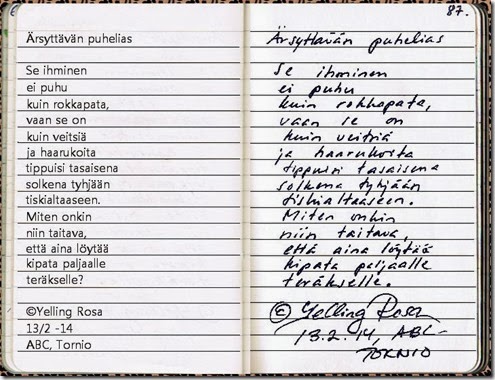 Ärsyttävän puhelias
Se ihminen
ei puhu
kuin rokkapata,
vaan se on
kuin veitsiä
ja haarukoita
tippuisi tasaisena
solkena tyhjään
tiskialtaaseen.
Miten onkin
niin taitava,
että aina löytää
kipata paljaalle
teräkselle?
©Yelling Rosa
13/2 -14
ABC, Tornio
87.
Ärsyttävän puhelias
Se ihminen
ei puhu
kuin rokkapata,
vaan se on
kuin veitsiä
ja haarukoita
tippuisi tasaisena
solkena tyhjään
tiskialtaaseen.
Miten onkin
niin taitava,
että aina löytää
kipata paljaalle
teräkselle.
© Yelling Rosa
13.2.14, ABC-
TORNIO